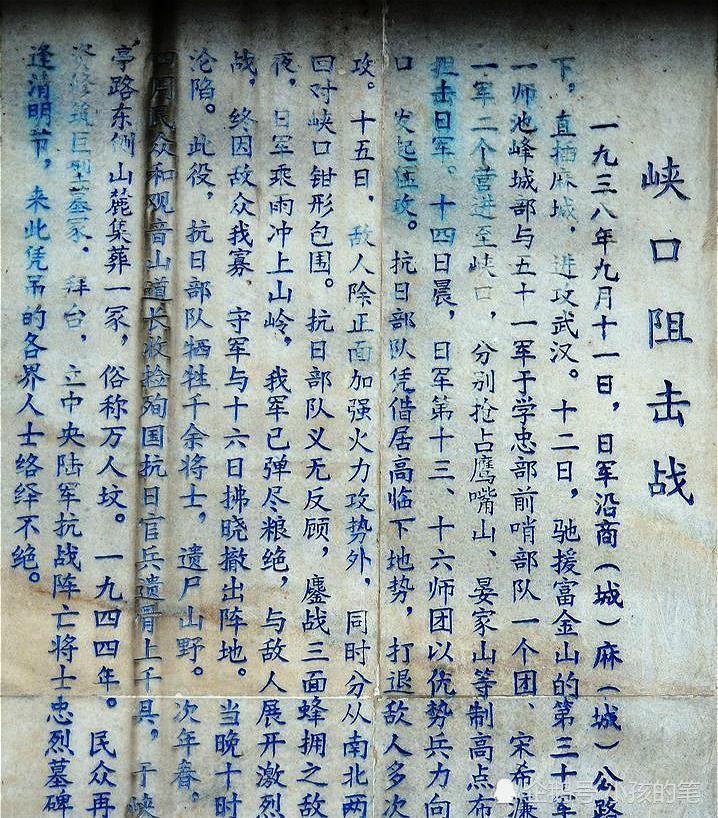 峡口阻击战
一九三八年九月十一日，日军沿商（城）麻（城）公路
下，直插麻城，进攻武汉。十二日，驰援富金山的第三十军
一师池峰城部与五十一军于学忠部前哨部队一个团、宋希濂
一军二个营进至峡口，分别抢占鹰嘴山、晏家山等制高点布
阻击日军。十四日晨，日军第十三、十六师团以优势兵力向
口发起猛攻。抗日部队凭借居高临下地势，打退敌人多次
攻。十五日，敌人除正面加强火力攻势外，同时分从南北两
回对峡口钳形包围。抗日部队义无反顾，鏖战三面蜂拥之敌
夜，日军乘雨冲上山岭，我军已弹尽粮绝，与敌人展开激烈
战，终因敌众我寡 守军与十六日拂晓撤出阵地。当晚十时
沦陷。此役，抗日部队牺牲千余将士，遗尸山野。次年春，
四周民众和观音山道长收捡殉国抗日官兵遗骨上千具，于峡
亭路东侧山麓集葬一冢，俗称万人坟。一九四四年。民众再
资修筑巨型墓冢，拜台，立中央陆军抗战阵亡将士忠烈墓碑
逢清明节，来此凭吊的各界人士络绎不绝。
企鹅号 小孩的笔